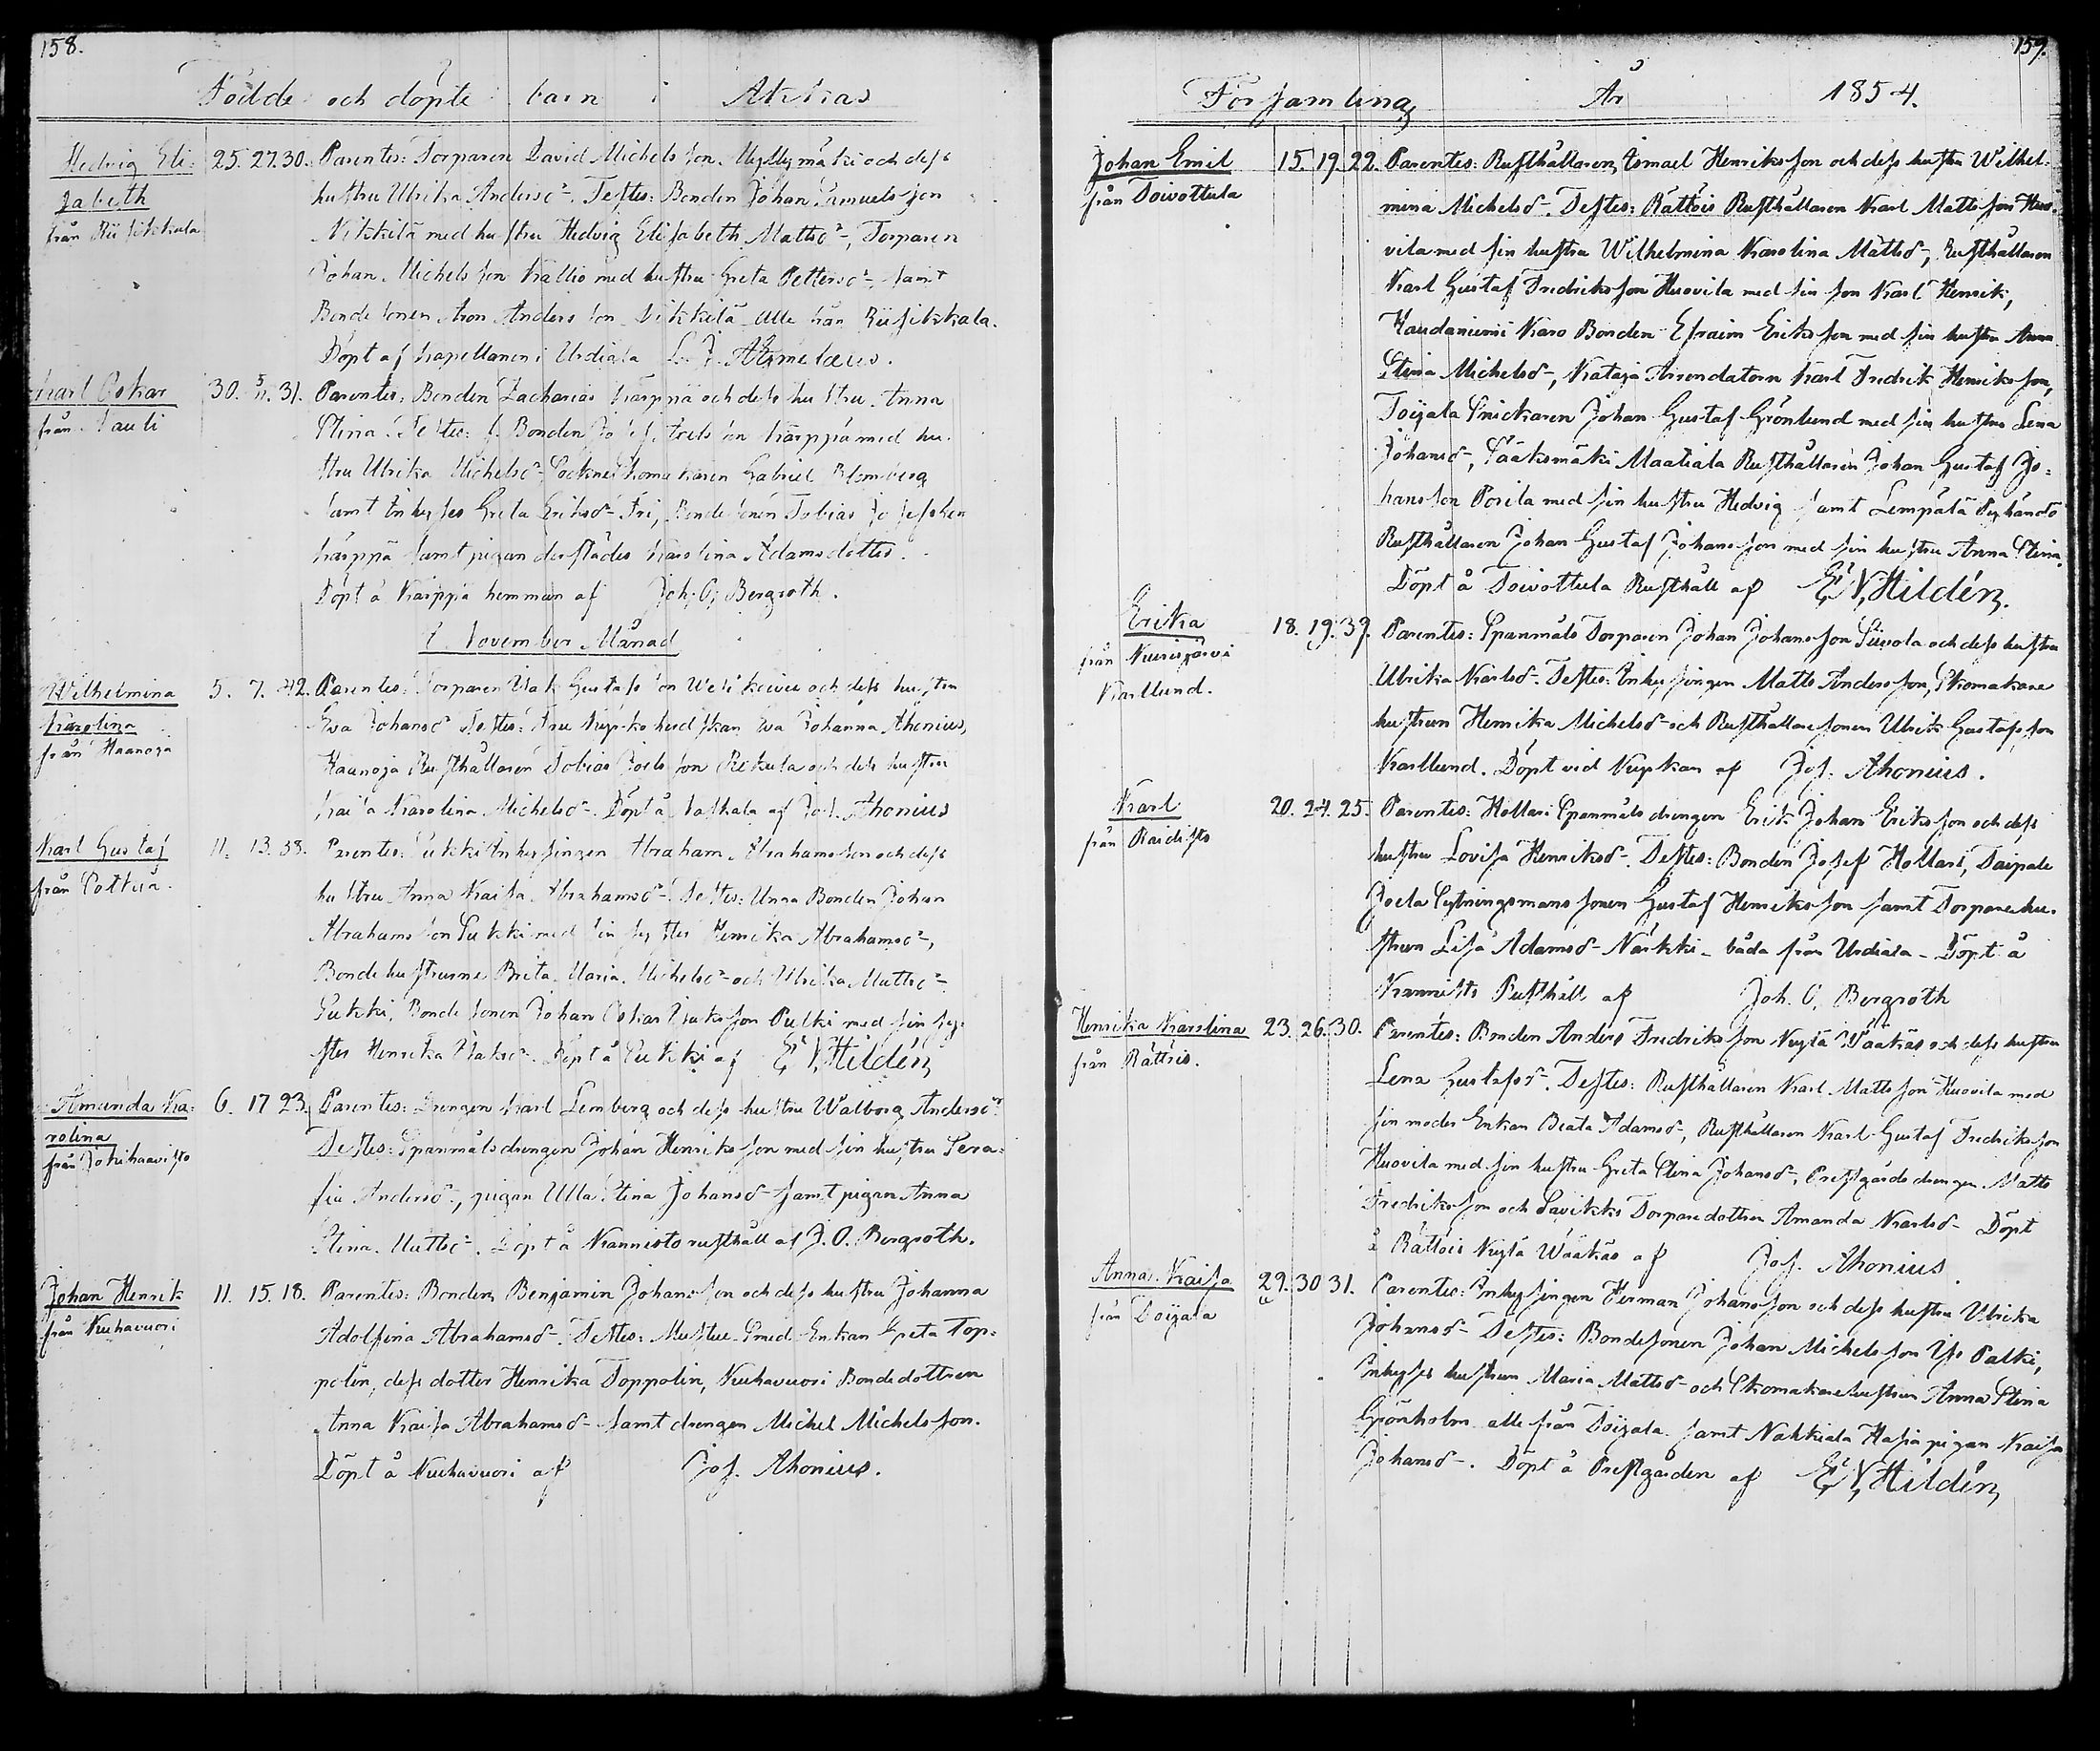 158.
Födde och döpte barn i Akkas
Hedvig Eli-
zabeth
från Riisikkala
25. 27. 30. Parentes: Torparen David Michelsson Myllymäki och dess
hustru Ulrika Andersd:r. Testes: Bonden Johan Samuelsson
Nikkilä med hustru Hedvig Elisabeth Mattsd:r, Torparen
Johan Michelsson Kallio med hustru Greta Pettersd:r, samt
Bondesonen Aron Andersson Nikkilä alla från Riisikkala.
Döpt af kapellanen i Urdiala L. J. Ahlmelæus.
Karl Oskar
från Nauli
30. 5/11. 31. Parentes: Bonden Zacharias Kärppä och dess hustru Anna
Stina. Testes: f. Bonden Josef Joelsson Kärppä med hu-
stru Ulrika Michelsd:r Sockneskomakaren Gabriel Blomberg
samt Inhyses Greta Eriksd:r Fri, Bondesonen Tobias Josefsson
Kärppä samt pigan derstädes Karolina Adamsdotter.
Döpt å Kärppä hemman af Joh. O. Bergroth.
November Månad
Wilhelmina
Karolina
från Haanoja
5. 7. 42. Parentes: Torparen Isak Gustafsson Wesikoivu och dess hustru
Eva Johansd:r Testes: Fru Kyrkoherdskan Eva Johanna Ahonius,
Haunoja Rusthållaren Tobias Joelsson Rekula och dess hustru
Kaisa Karolina Michelsd:r. Döpt å Vashala af Jos. Ahonius
Karl Gustaf
från Pottua.
11. 13. 38. Parentes: Pukki Inhysingen Abraham Abrahamsson och dess
hustru Anna Kaisa Abrahamsd:r. Testes: Unna Bonden Johan
Abrahamsson Pukki med sin syster Henrika Abrahamsd:r,
Bondehustrurne Brita Maria Michelsd:r och Ulrika Mattsd:r
Pukki, Bondesonen Johan Oskar Isaksson Pukki med sin sy-
ster Henrika Isaksd:r. Döpt å Pukki af E. V. Hildén
Amanda Ka-
rolina
från Jokihaavisto
6. 17 23. Parentes: Drengen Karl Lemberg och dess hustru Walborg Andersd:r
Testes: Spanmålsdrengen Johan Henriksson med sin hustru Sera-
fia Andersd:r, pigan Ulla Stina Johansd:r samt pigan Anna
Stina Mattsd:r. Döpt å Kannisto rusthåll af J. O. Bergroth.
Johan Henrik
från Kuhavuori
11. 15. 18. Parentes: Bonden Benjamin Johansson och dess hustru Johanna
Adolfina Abrahamsd:r. Testes: Smed Enkan Greta Top-
polin, dess dotter Henrika Toppolin, Kuhavuori Bondedottren
Anna Kaisa Abrahamsd:r samt drengen Michel Michelsson.
Döpt å Kuhavuori af Jos. Ahonius.
159.
Församling År 1854.
Johan Emil
från Toivottula
15. 19. 22. Parentes: Rusthållaren Ismael Henriksson och dess hustru Wilhel-
mina Michelsd:r. Testes: Rättöis Rusthållaren Karl Mattsson Huo-
vila med sin hustru Wilhelmina Karolina Mattsd:r, Rusthållaren
Karl Gustaf Fredriksson Huovila med sin son Karl Henrik,
Haudaniemi Karo Bonden Efraim Eriksson med sin hustru Anna
Stina Michelsd:r, Kataja Arrendatorn Karl Fredrik Henriksson,
Toijala Snickaren Johan Gustaf Grönlund med sin hustru Lena
Johansd:r, Sääksmäki Maatiala Rusthållaren Johan Gustaf Jo-
hansson Posila med sin hustru Hedvig samt Lempälä Pyhändö
Rusthållaren Johan Gustaf Johansson med sin hustru Anna Stina.
Döpt å Toivottula Rusthåll af E. V. Hildén.
Erika
från Kurisjärvi
Karllund.
18. 19. 39. Parentes: Spanmåls Torparen Johan Johansson Siivola och dess hustru
Ulrika Karlsd:r. Testes: Inhysingen Matts Andersson, Skomakare
hustrun Henrika Michelsd:r och Rusthållaresonen Ulrik Gustafsson
Karllund. Döpt vid Kyrkan af Jos. Ahonius.
Karl
från Kaidisto
20. 24. 25. Parentes: Hollari Spanmålsdrengen Erik Johan Eriksson och dess
hustru Lovisa Henriksd:r. Testes: Bonden Josef Hollari, Taipale
Joela Sytningsmanssonen Gustaf Henriksson samt Torparehu-
strun Lisa Adamsd:r Närkki båda från Urdiala. Döpt å
Kannisto Rusthåll af Joh. O. Bergroth
Henrika Karolina
från Rättöis.
23. 26. 30. Parentes: Bonden Anders Fredriksson Kuytä Wääkäs och dess hustru
Lena Gustafsd:r. Testes: Rusthållaren Karl Mattsson Huovila med
sin moder Enkan Beata Adamsd:r, Rusthållaren Karl Gustaf Fredriksson
Huovila med sin hustru Greta Stina Johansd:r, Prestgårds drengen Matts
Fredriksson och Savikko Torparedottren Amanda Karlsd:r Döpt
å Rättöis Kuytä Wääkäs af Jos. Ahonius
Anna Kaisa
från Toijala
29. 30 31. Parentes: Inhysingen Herman Johansson och dess hustru Ulrika
Johansd:r Testes: Bondesonen Johan Michelsson Ys Palki,
Inhyses hustrun Maria Mattsd:r och Skomakarehustrun Anna Stina
Grönholm alla från Toijala samt Nahkiala Hasia pigan Kaisa
Johansd:r. Döpt å Prestgården af E. V. Hildén